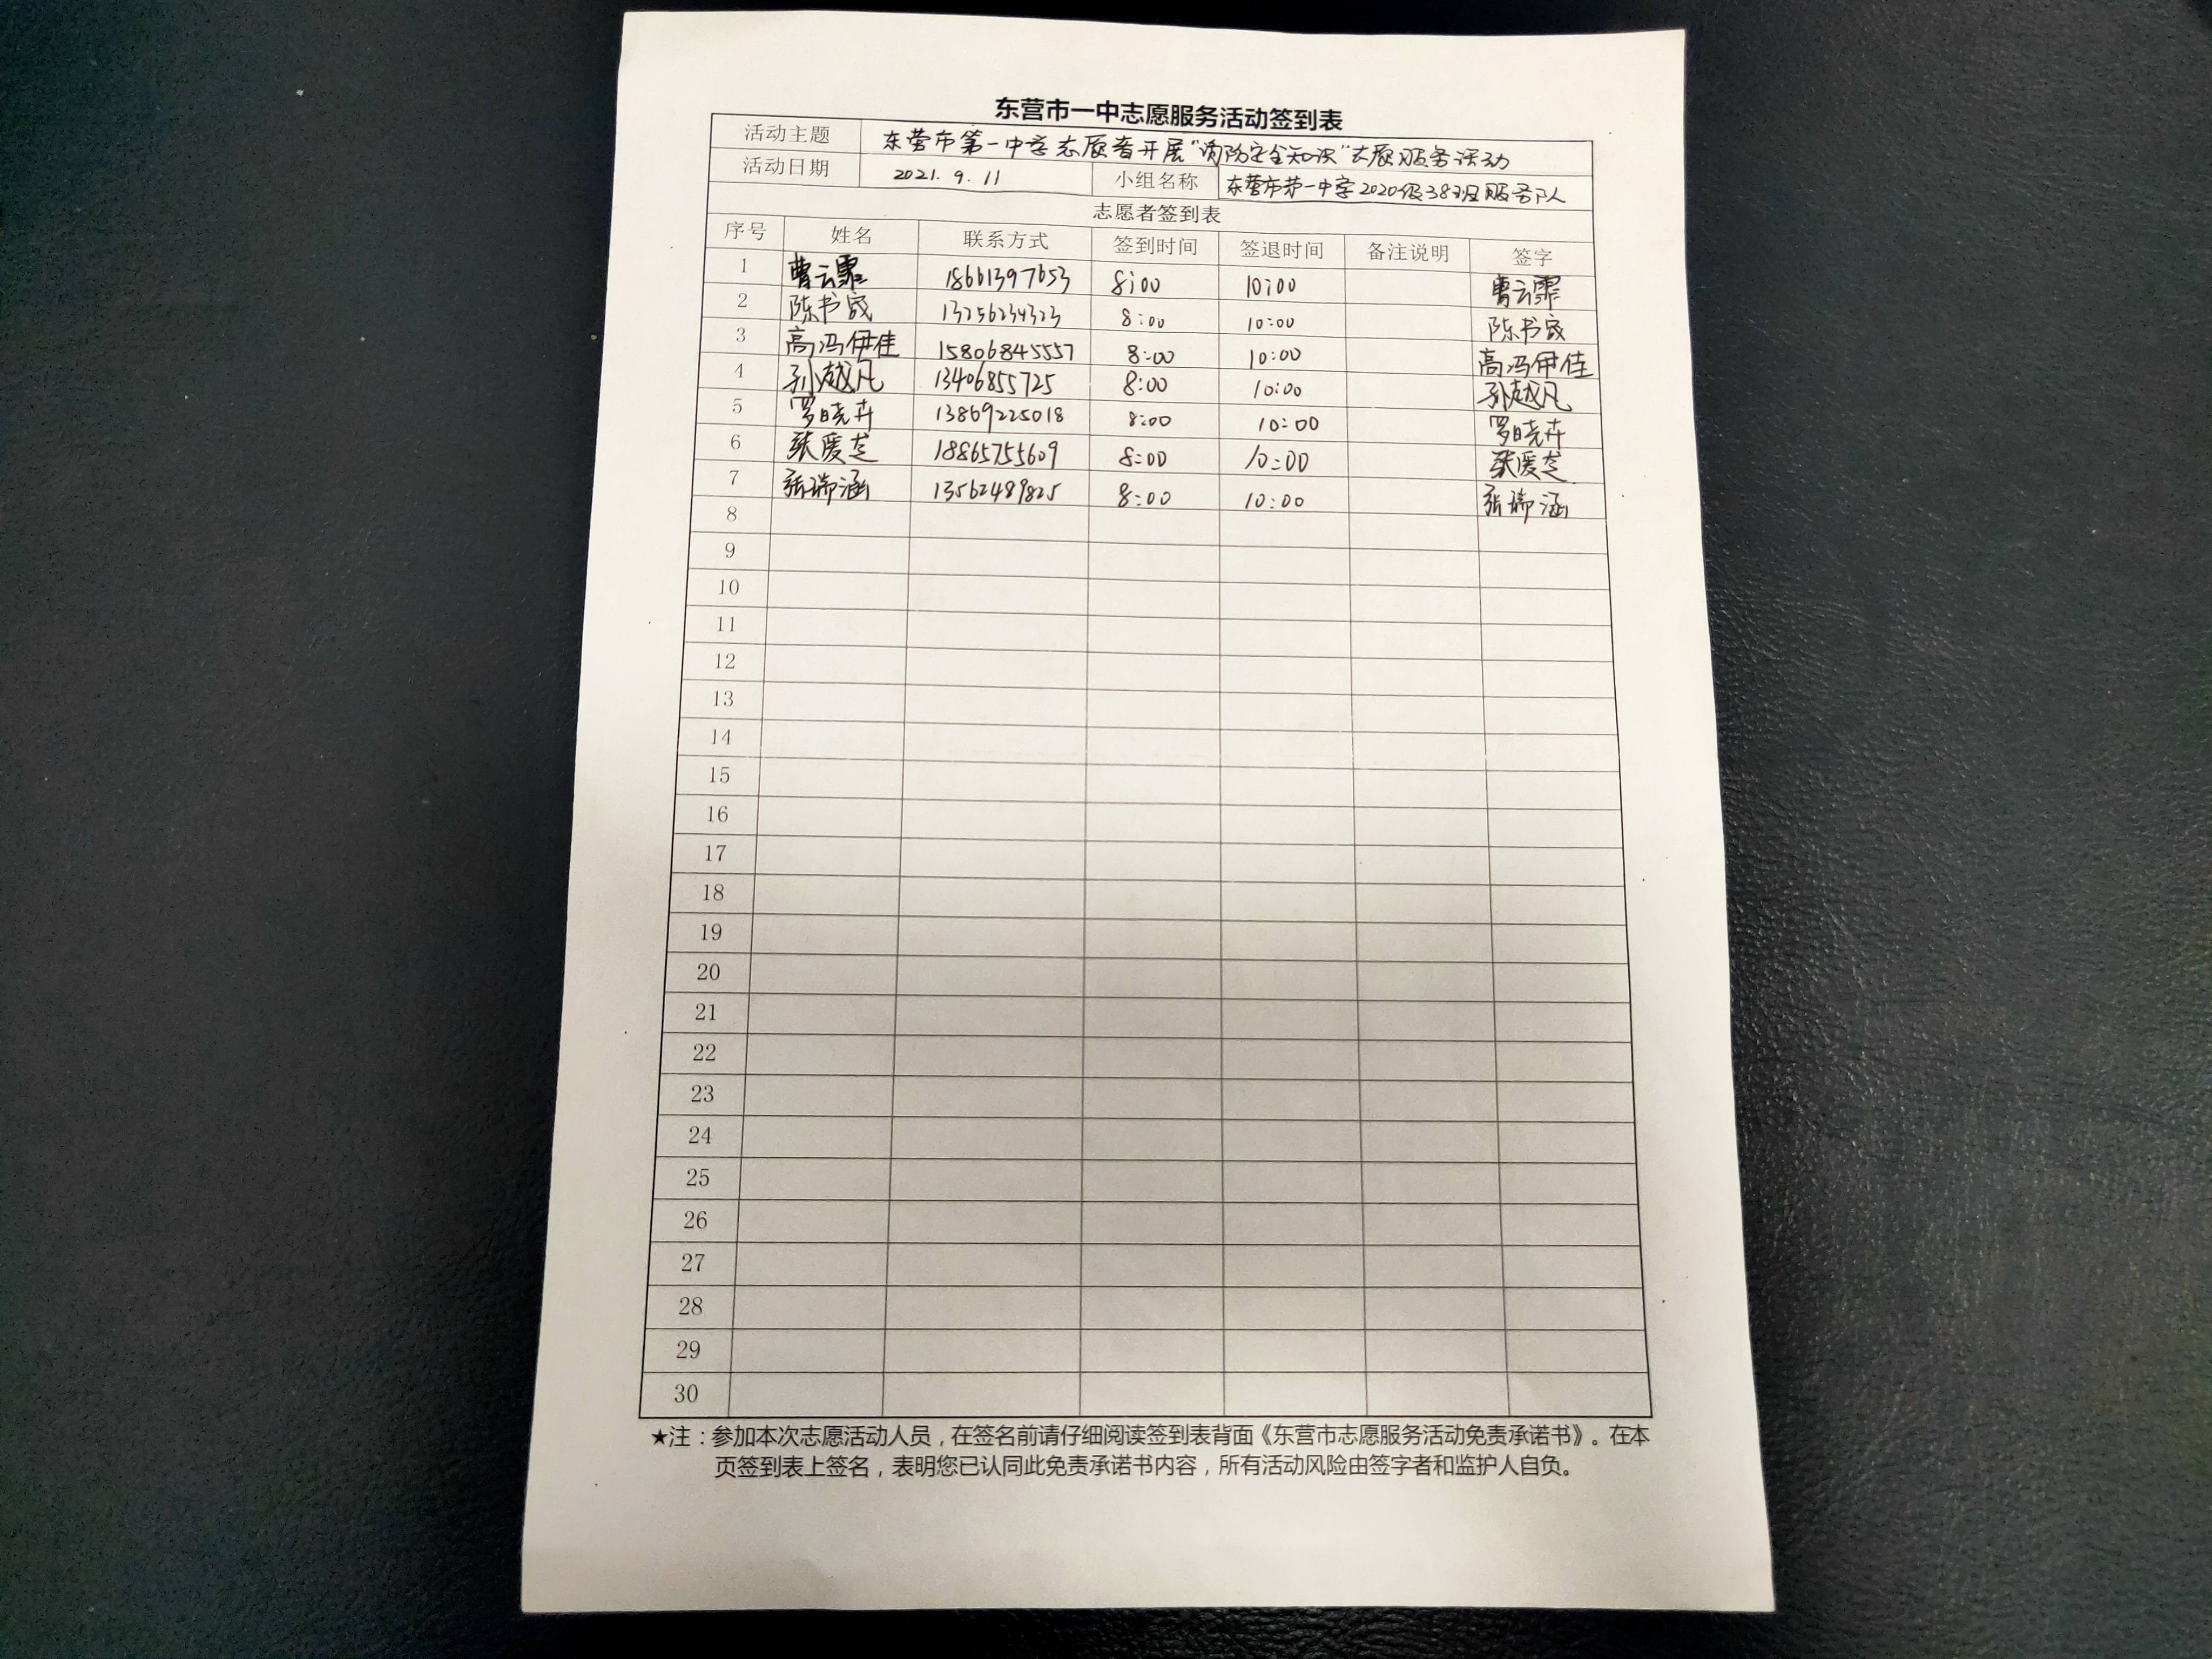 东营市一中志愿服务活动签到表
活动主题 东营市第一中学志愿者开展"消防安全知识"志愿服务活动
活动日期 2021.9.11 小组名称 东营市第一中学2020级38班服务个人
志愿者签到表
序号 姓名 联系方式 签到时间 签退时间 备注说明 签字
1 曹云霏 18661397653 8:00 10:00 曹云霏
2 陈书宬 13256234323 8:00 10:00 陈书宬
3 高冯伊佳 15806845557 8:00 10:00 高冯伊佳
4 孙越凡 13406855725 8:00 10:00 孙越凡
5 罗晓卉 13869225018 8:00 10:00 罗晓卉
6 张爱芝 18865755609 8:00 10:00 张爱芝
7 张瑞涵 13562489825 8:00 10:00 张瑞涵
8
9
10
11
12
13
14
15
16
17
18
19
20
21
22
23
24
25
26
27
28
29
30
★注：参加本次志愿活动人员，在签名前请仔细阅读签到表背面《东营市志愿服务活动免责承诺书》。在本
页签到表上签名，表明您已认同此免责承诺书内容，所有活动风险由签字者和监护人自负。